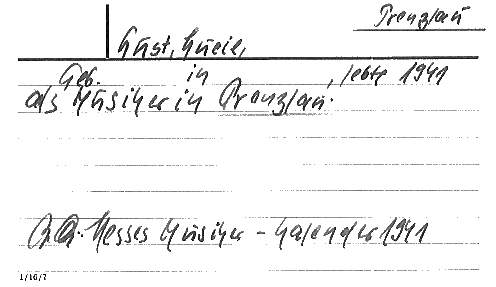 Prenzlau
Lust, Lucie,
Geb. in , lebte 1941
als Musiker in Prenzlau.
Hesses Musiker-Kalender 1941
1/16/7